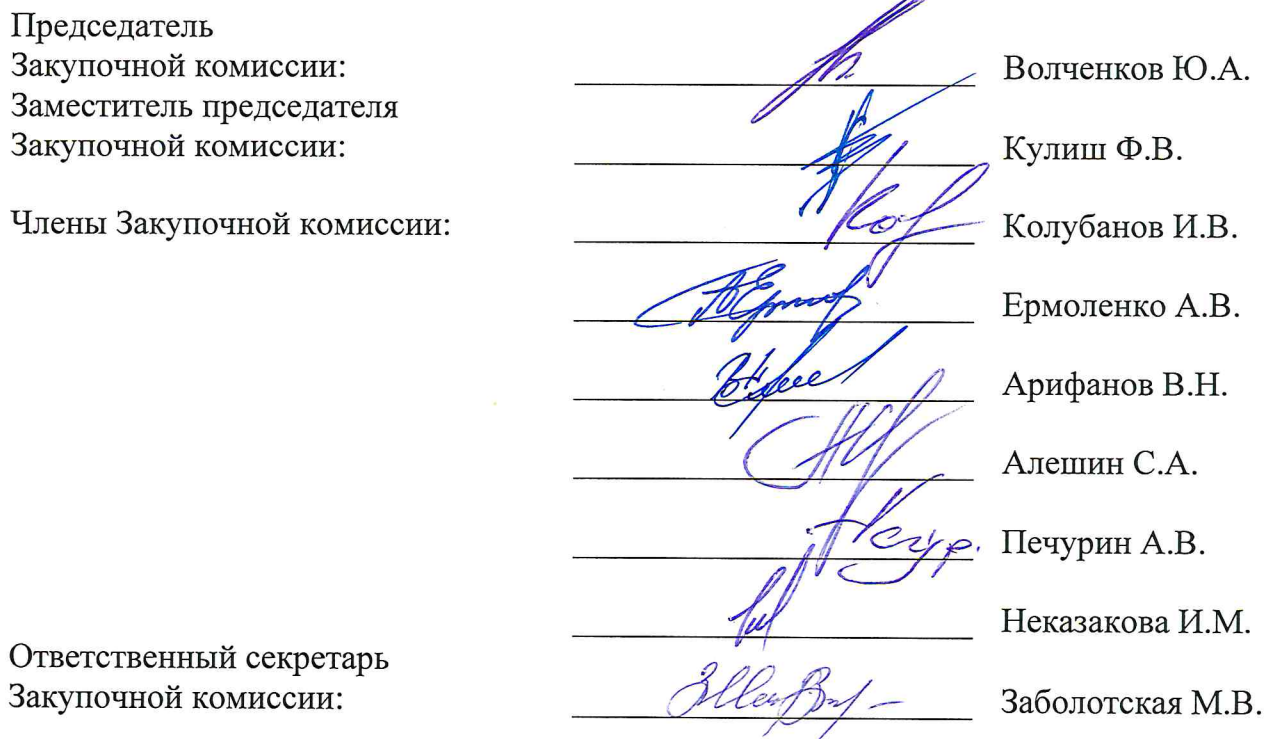 Председатель
Закупочной комиссии: Волченков Ю.А.
Заместитель председателя
Закупочной комиссии: Кулиш Ф.В.
Члены Закупочной комиссии: Колубанов И.В.
Ермоленко А.В.
Арифанов В.Н.
Алешин С.А.
Печурин А.В.
Неказакова И.М.
Ответственный секретарь
Закупочной комиссии: Заболотская М.В.